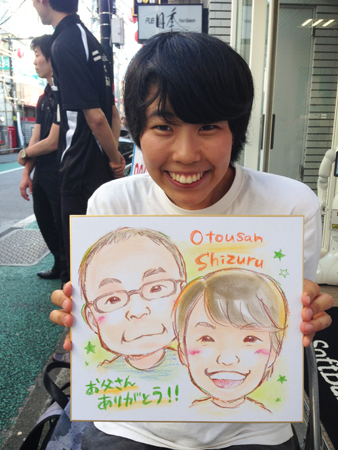 Otousan
Shizuru
お父さん
ありがとう!!
SoftBa